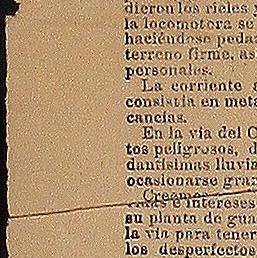 dieron los rieles y
la locomotora se
haciéndose peda
terreno firme, as
personales.
La corriente a
consistia en meta
cancías.
En la via del C
tos peligrosos, d
dantísimas lluvia
ocasionarse gran
Creemos
intereses
su planta de gua
la via para tener
los desperfectos